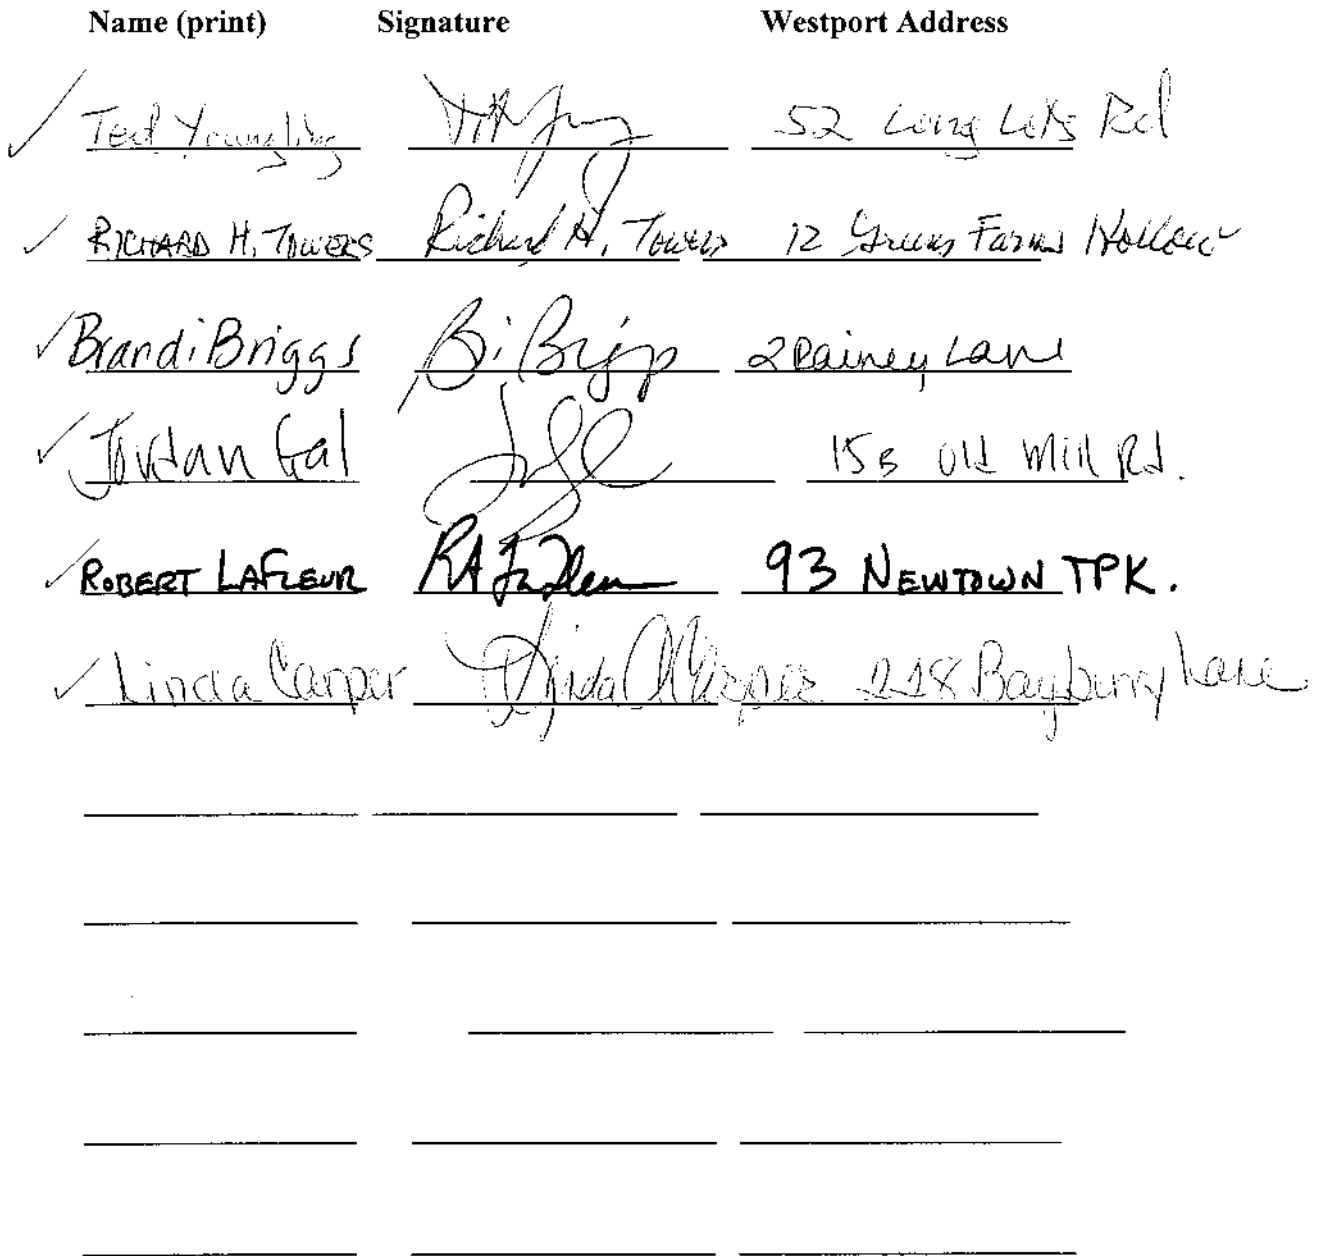 Name (print) Signature Westport Address
Ted Youngling 52 Long Lots Rd
RICHARD H. TOWERS Richard H. Towers 12 Greens Farms Hollow
Brandi Briggs Bi Briggs 2 Rainey Lane
Jordan Gal 15B Old Mill Rd.
ROBERT LAFLEUR RA LaFleur 93 NEWTOWN TPK.
Linda Carper Linda Carper 218 Bayberry Lane